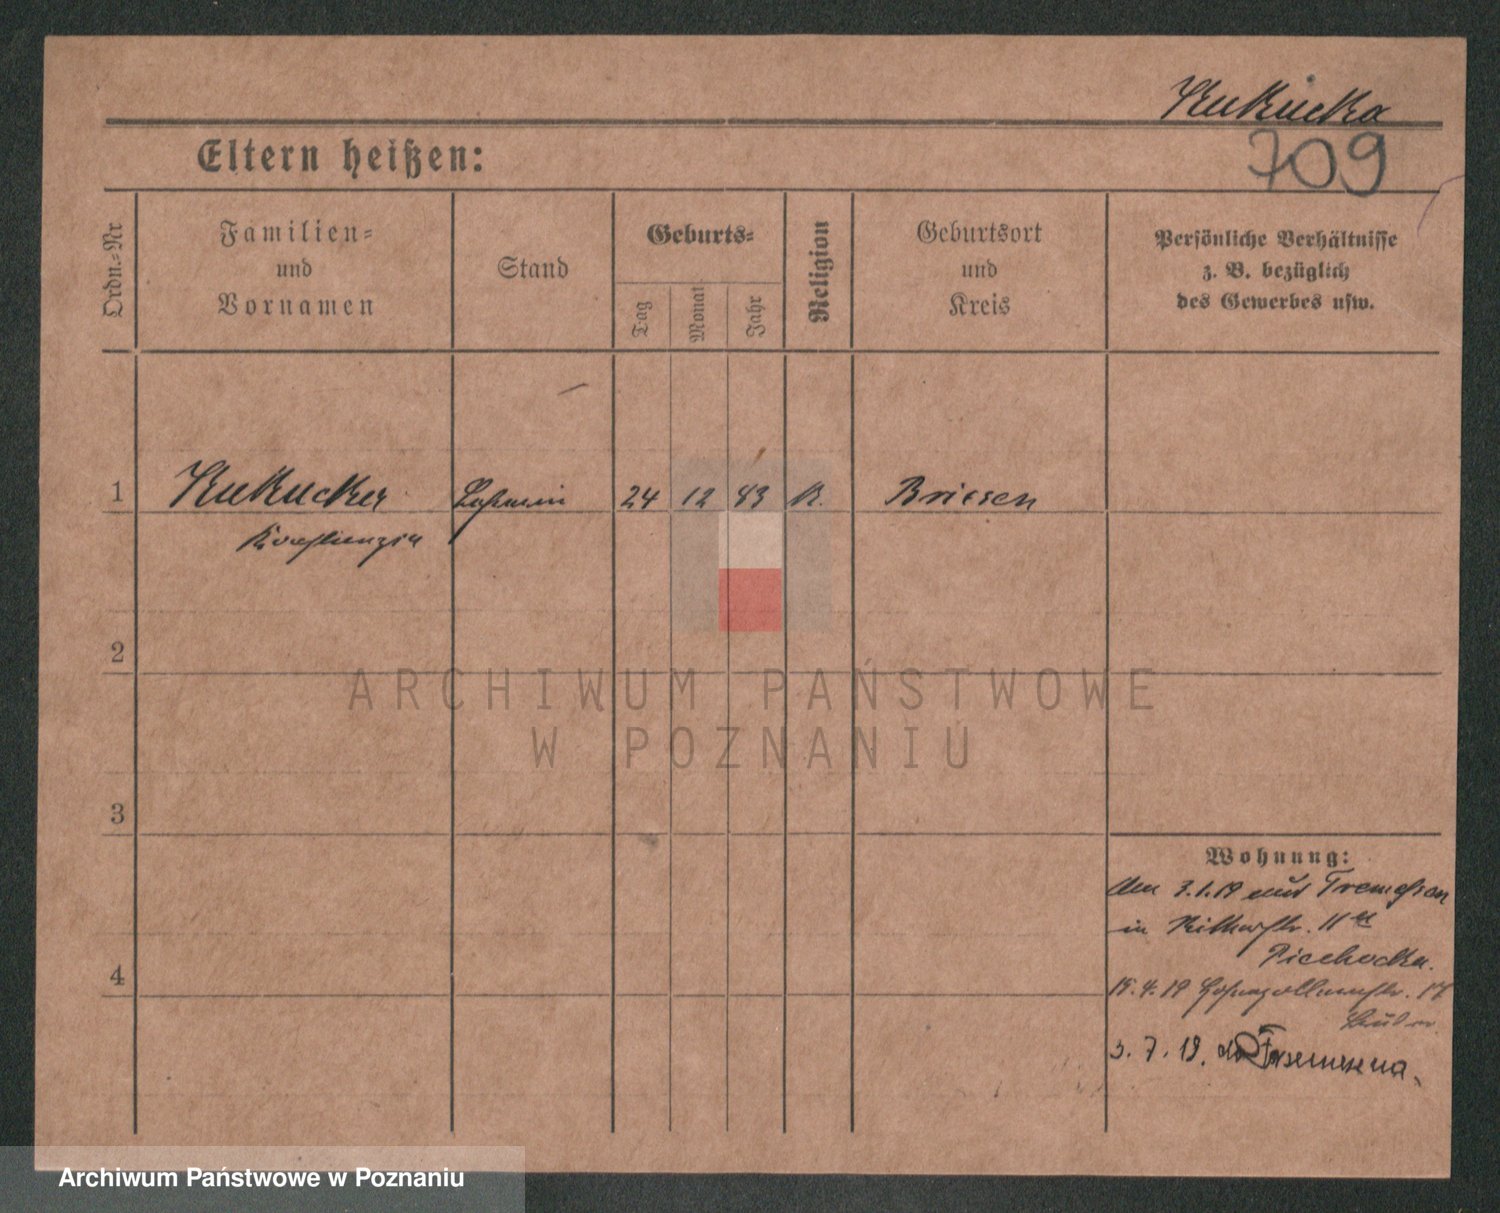 Kukucka
709
Eltern heißen:
Ordn.-Nr
Familien-
und
Vornamen
Stand
Geburts-
Tag
Monat
Jahr
Religion
Geburtsort
und
Kreis
Persönliche Verhältnisse
z. B. bezüglich
des Gewerbes usw.
1
Kukucker
24
12
83
K.
Briesen
2
3
4
Wohnung:
Am 3.1.19 aus Tremessen
in Ritterstr. 11
Piechocka.
15.4.19 Hohenzollernstr. 17
3. 7. 19. do Trzemeszna.
ARCHIWUM PAŃSTWOWE
W POZNANIU
Archiwum Państwowe w Poznaniu